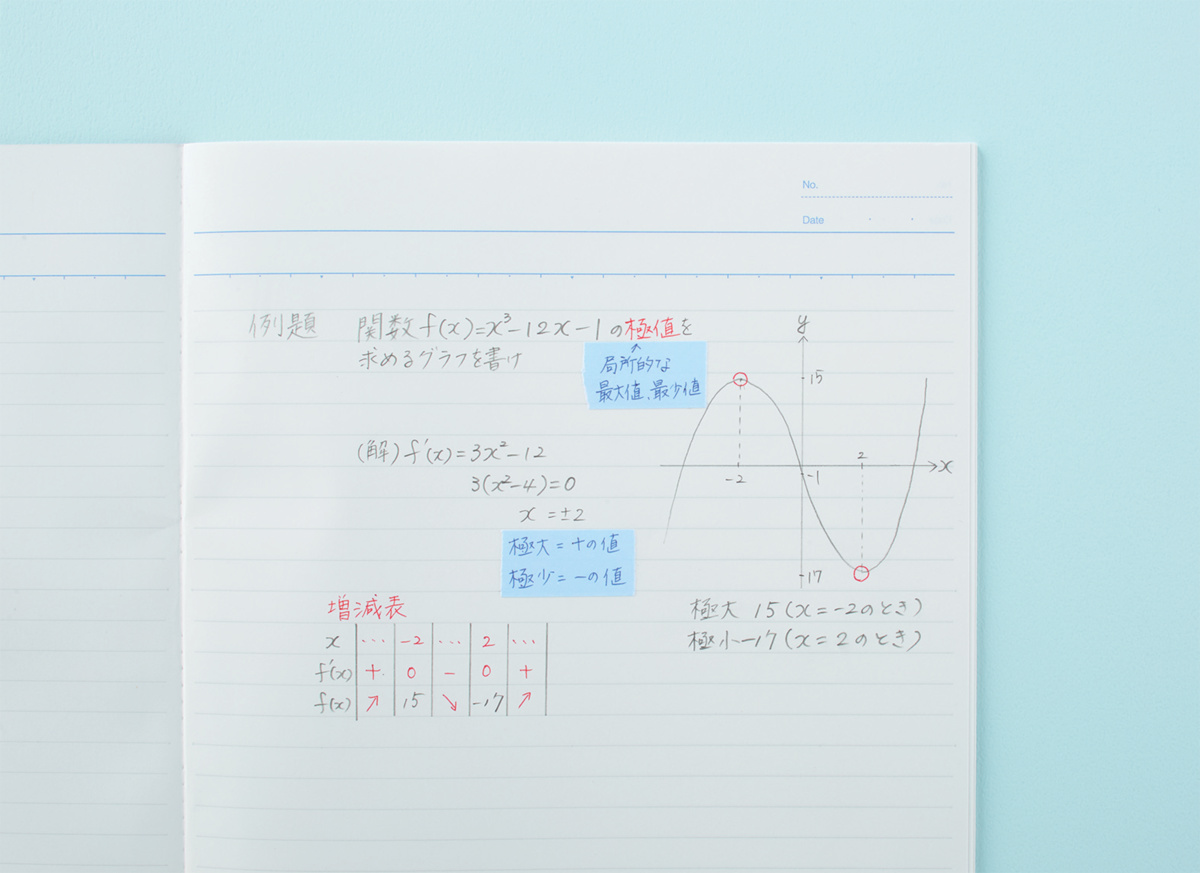 No.
Date
例題 関数f(x)=x³-12x-1の極値を
求めるグラフを書け
局所的な
最大値、最少値
(解)f'(x)=3x²-12
3(x²-4)=0
x=±2
極大=+の値
極少=-の値
増減表
x … -2 … 2 …
f'(x) + 0 - 0 +
f(x) ↗ 15 ↘ -17 ↗
y
15
2
x
-2
-1
17
極大 15(x=-2のとき)
極小-17(x=2のとき)